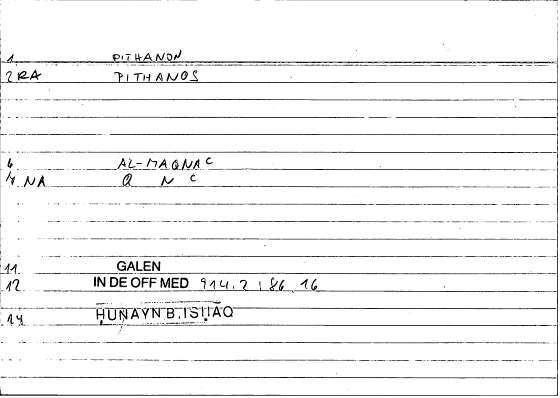 1 PITHANON
2 RA PITHANOS
6 AL-MAQNAC
7 NA Q N C
11 GALEN
12 IN DE OFF MED 914.2 : 86.16
14 ḤUNAYN B. ISḤĀQ